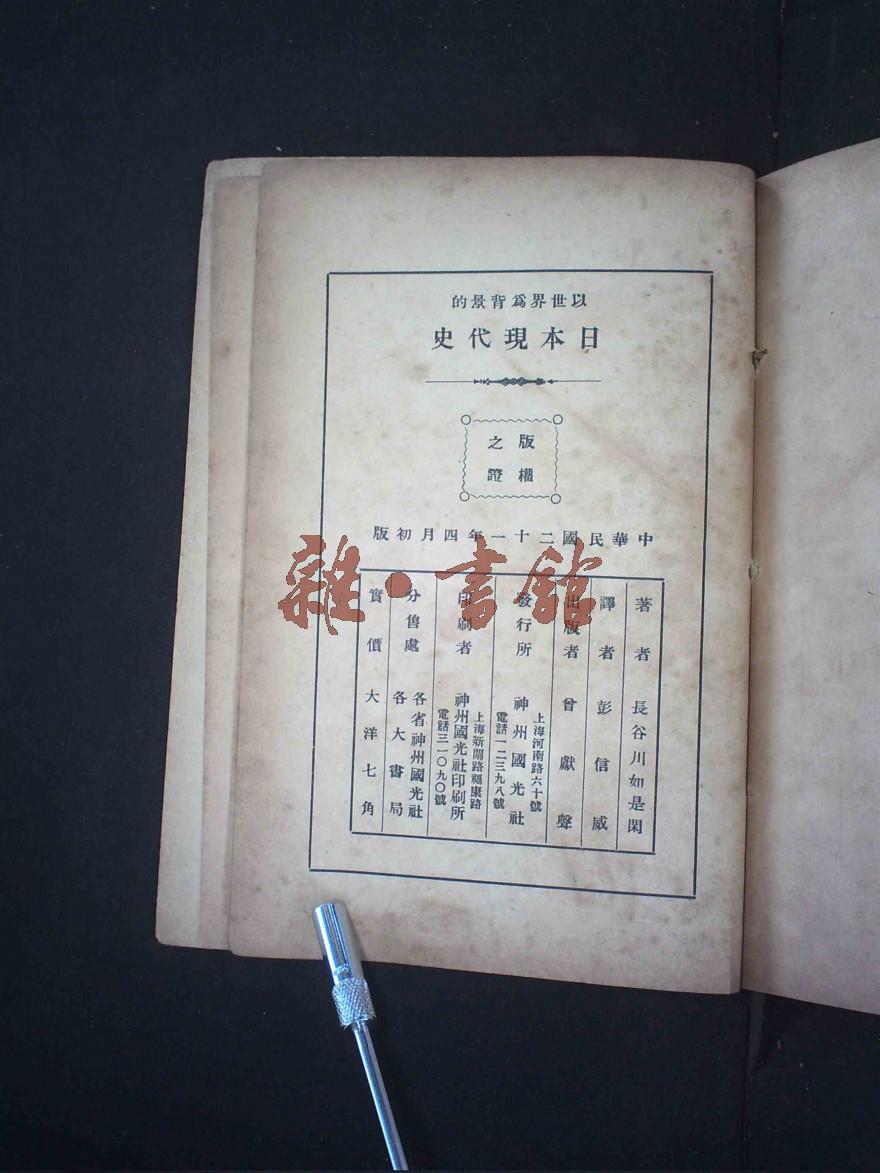 以世界爲背景的
日本現代史
版權
之證
中華民國二十一年四月初版
著者 長谷川如是閑
譯者 彭信威
出版者 曾獻聲
發行所 神州國光社
上海河南路六十號
電話一二三九八號
印刷者 神州國光社印刷所
上海新閘路福康路
電話三一〇九〇號
分售處 各省神州國光社
各大書局
實價 大洋七角
雜·書館